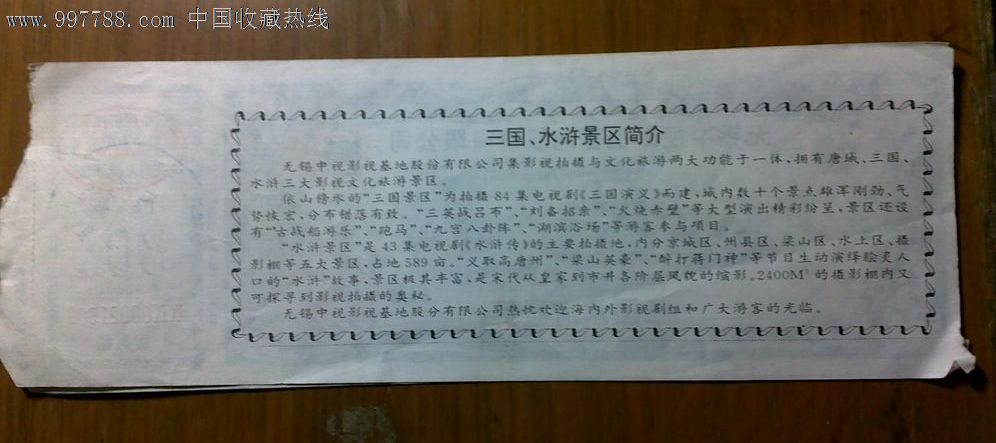 www.997788.com 中国收藏热线
三国、水浒景区简介
无锡中视影视基地股份有限公司集影视拍摄与文化旅游两大功能于一体,拥有唐城、三国、
水浒三大影视文化旅游景区。
依山傍水的“三国景区”为拍摄84集电视剧《三国演义》而建,城内数十个景点雄浑刚劲、气
势恢宏,分布错落有致。“三英战吕布”、“刘备招亲”、“火烧赤壁”等大型演出精彩纷呈,景区还设
有“古战船游乐”、“跑马”、“九宫八卦阵”、“湖滨浴场”等游客参与项目。
“水浒景区”是43集电视剧《水浒传》的主要拍摄地,内分京城区、州县区、梁山区、水上区、摄
影棚等五大景区,占地589亩。“义取高唐州”、“梁山英豪”、“醉打蒋门神”等节目生动演绎脍炙人
口的“水浒”故事,景区极其丰富,是宋代从皇家到市井各阶层风貌的缩影。2400M²的摄影棚内又
可探寻到影视拍摄的奥秘。
无锡中视影视基地股份有限公司热忱欢迎海内外影视剧组和广大游客的光临。